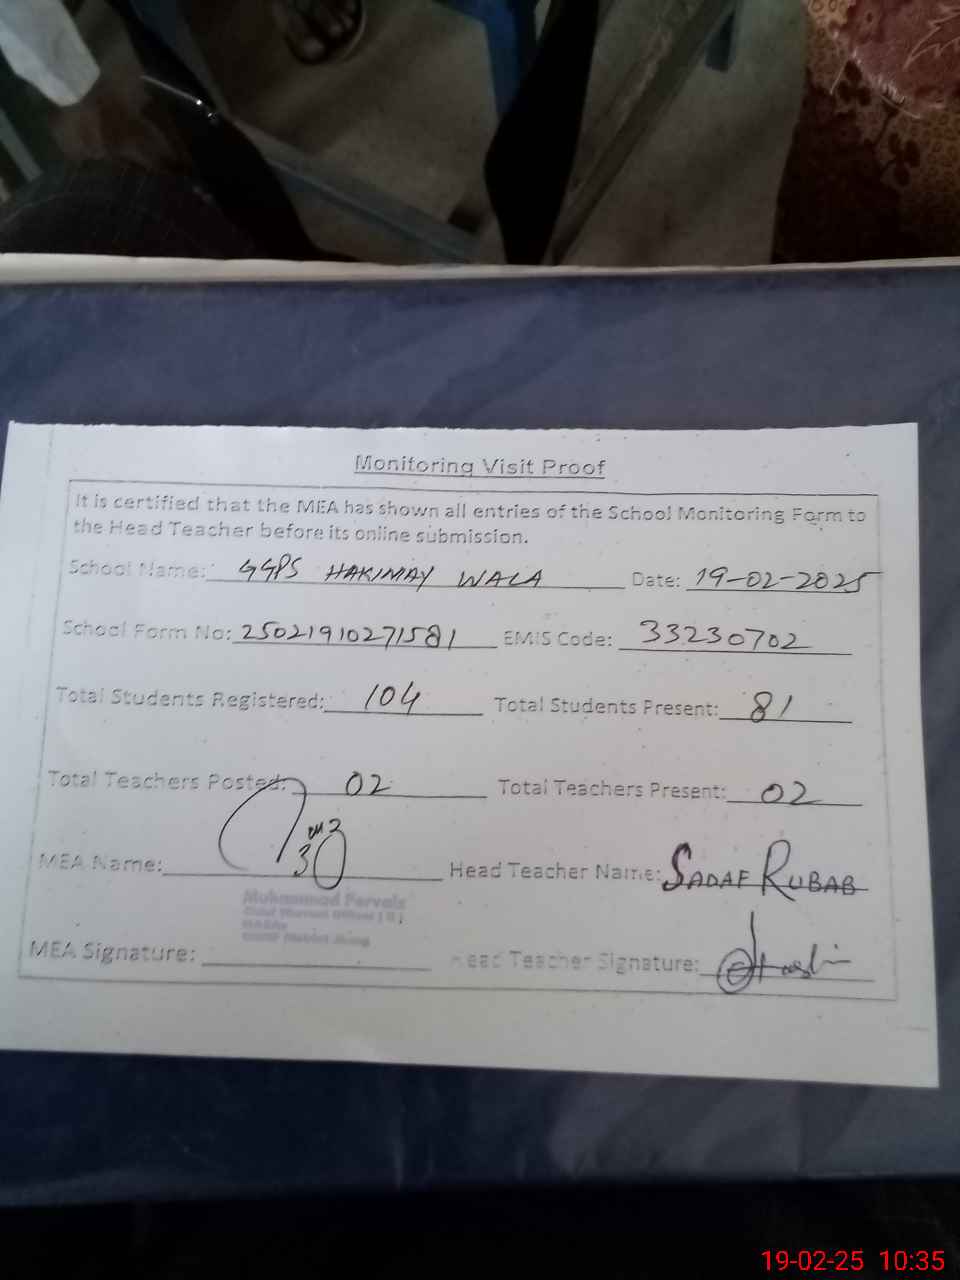 Monitoring Visit Proof
It is certified that the MEA has shown all entries of the School Monitoring Form to
the Head Teacher before its online submission.
School Name: GGPS HAKIMAY WALA Date: 19-02-2025
School Form No: 25021910271581 EMIS Code: 33230702
Total Students Registered: 104 Total Students Present: 81
Total Teachers Posted: 02 Total Teachers Present: 02
MEA Name: Head Teacher Name: SADAF RUBAB
Muhammad Pervaiz
MEA Signature: Head Teacher Signature:
19-02-25 10:35